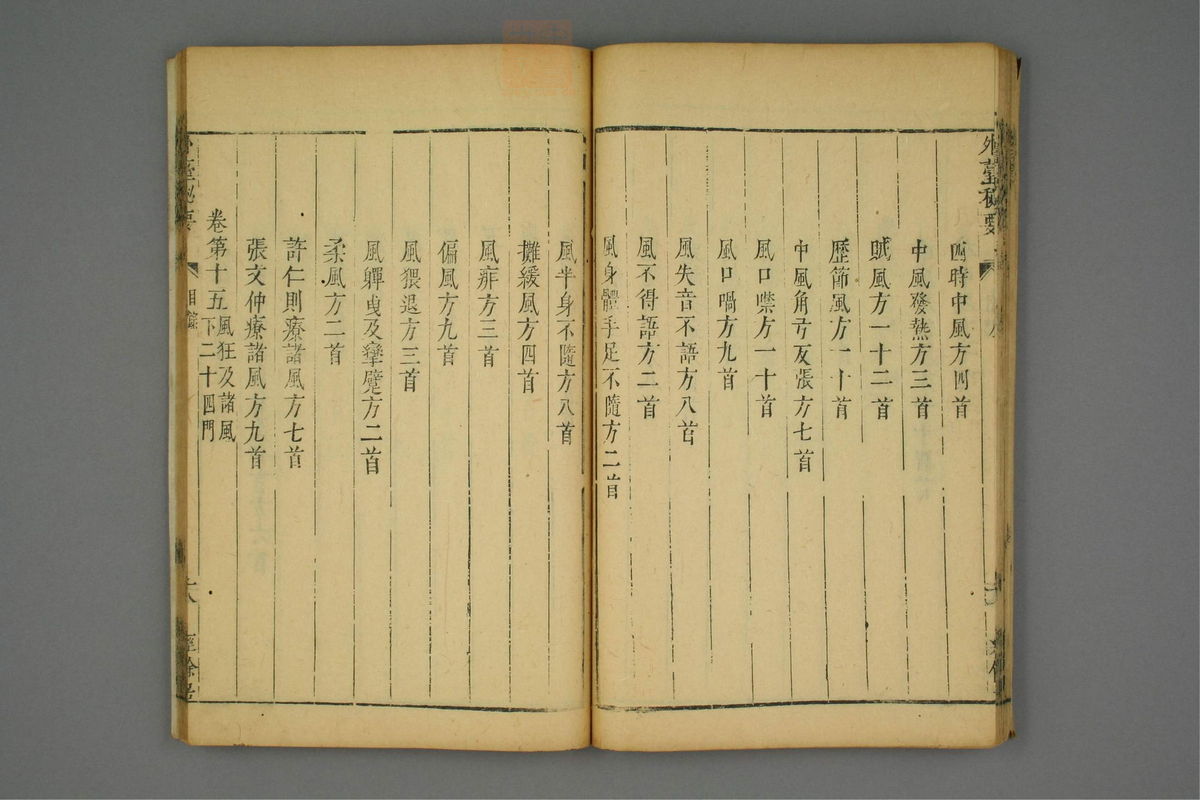 外臺秘要
四時中風方四首
中風發熱方三首
賊風方一十二首
歷節風方一十首
中風角弓反張方七首
風口噤方一十首
風口喎方九首
風失音不語方八首
風不得語方二首
風身體手足不隨方二首
風半身不隨方八首
攤緩風方四首
風痱方三首
偏風方九首
風猥退方三首
風軃曳及攣躄方二首
柔風方二首
許仁則療諸風方七首
張文仲療諸風方九首
卷第十五風狂及諸風
下二十四門
臺秘要
目錄
經餘居